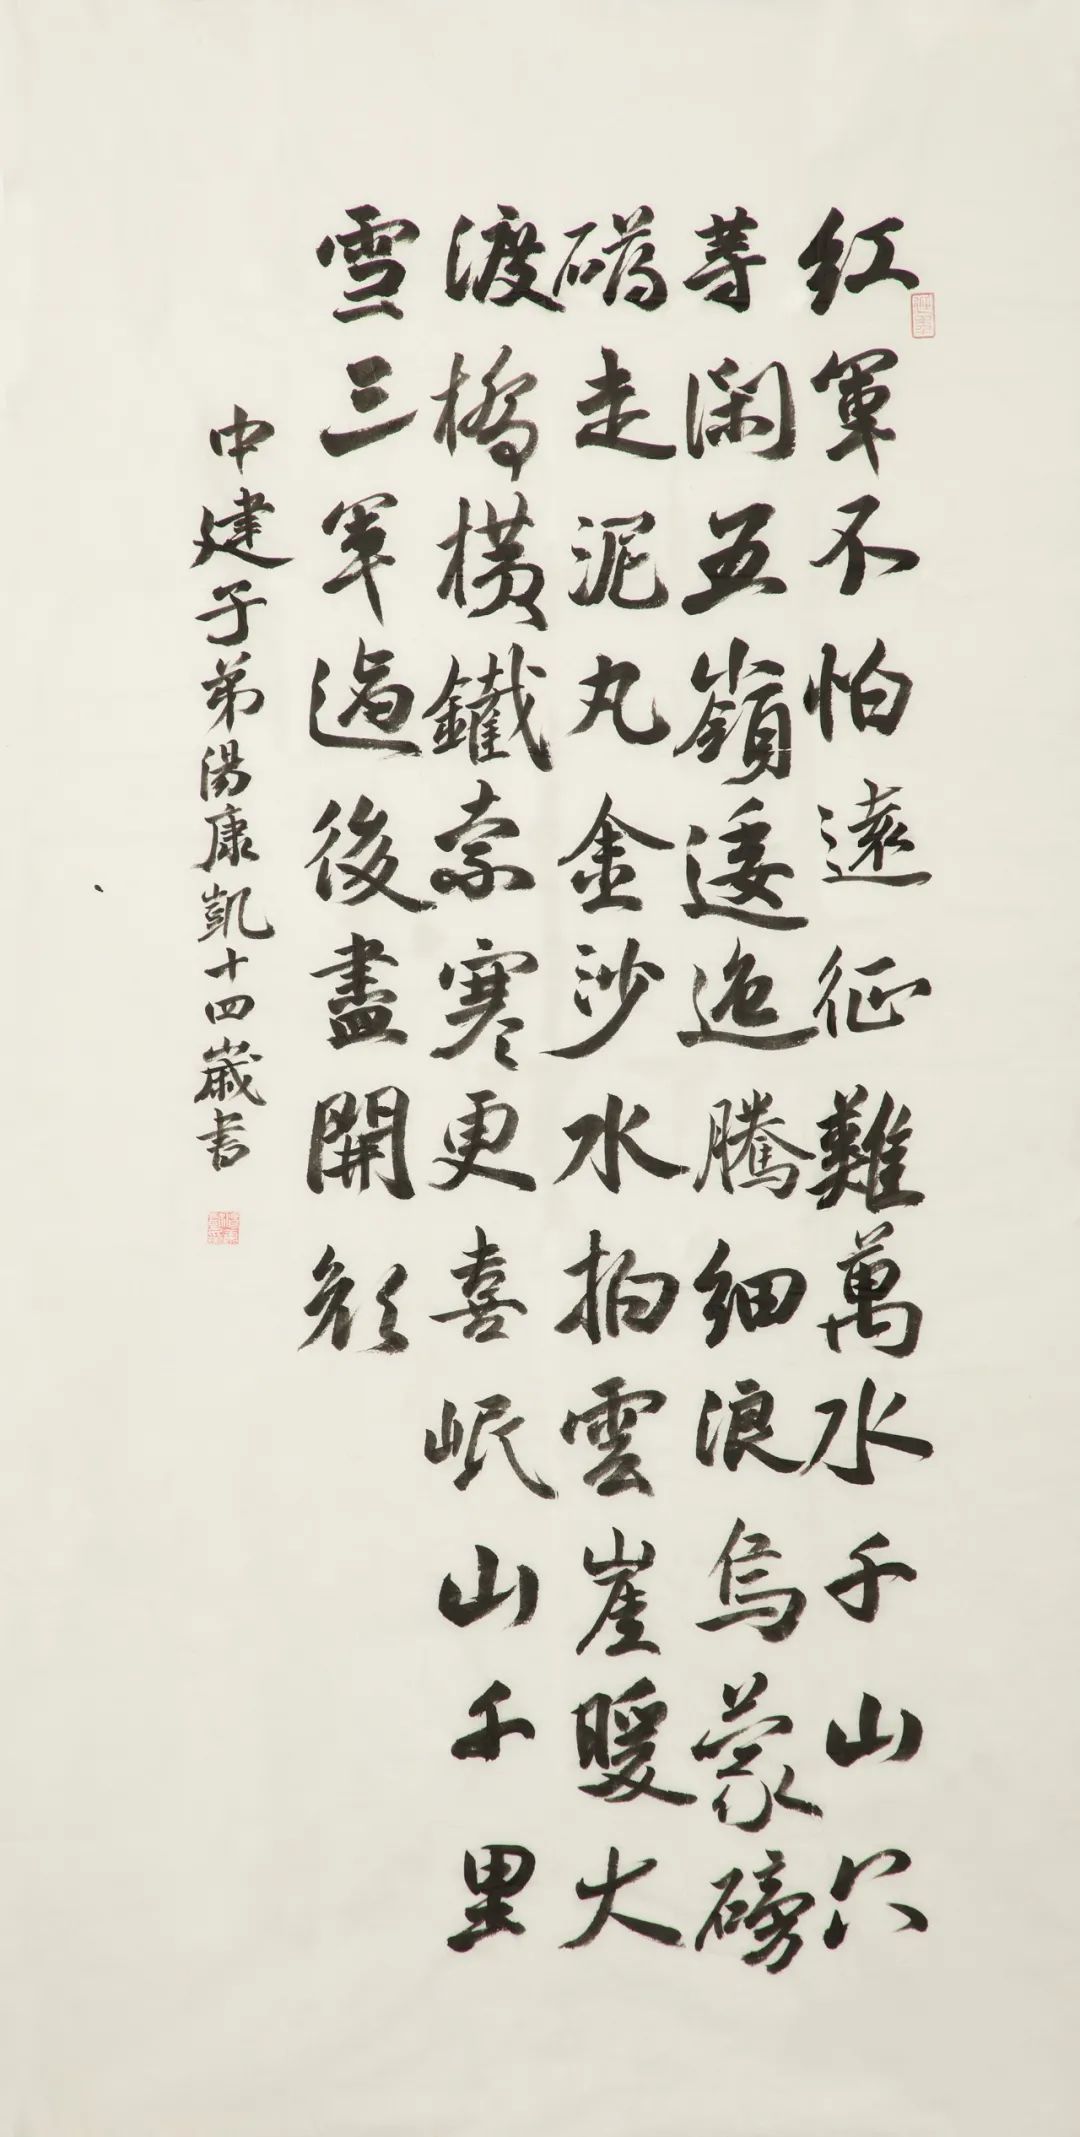 红軍不怕遠征難萬水千山只
等閑五嶺逶迤騰細浪烏蒙磅
礴走泥丸金沙水拍雲崖暖大
渡橋橫鐵索寒更喜岷山千里
雪三軍過後盡開顏
中建子弟湯康凱十四歲书